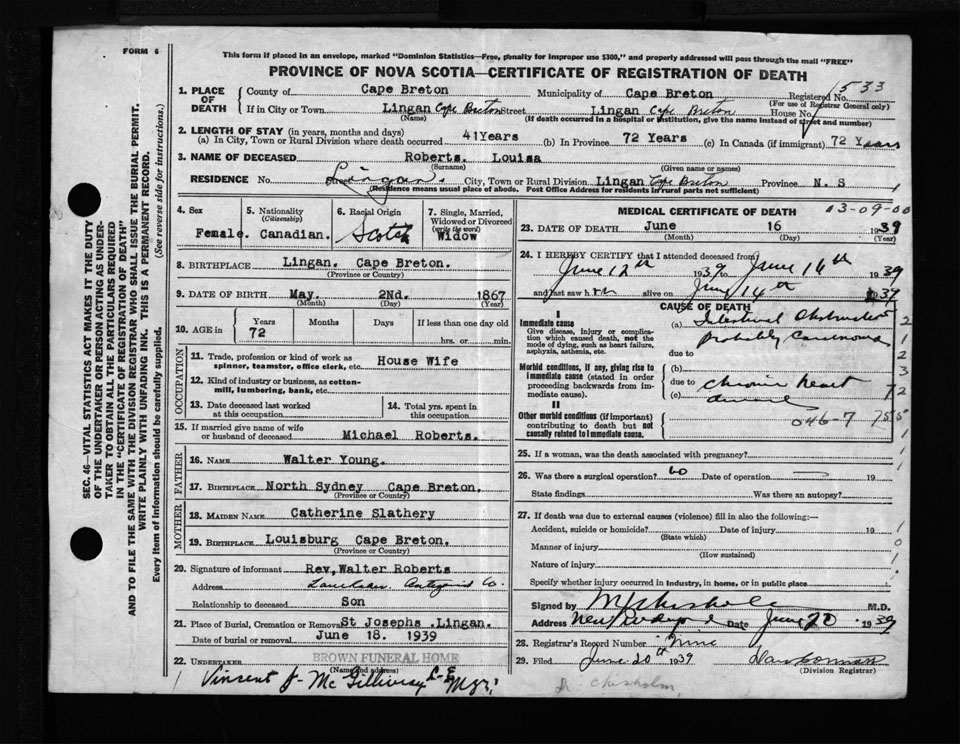 FORM 6
This form if placed in an envelope, marked "Dominion Statistics—Free, penalty for improper use $300," and properly addressed will pass through the mail "FREE"
PROVINCE OF NOVA SCOTIA—CERTIFICATE OF REGISTRATION OF DEATH
SEC. 46—VITAL STATISTICS ACT MAKES IT THE DUTY
OF THE UNDERTAKER OR PERSON ACTING AS UNDER-
TAKER TO OBTAIN ALL THE PARTICULARS REQUIRED
IN THE "CERTIFICATE OF REGISTRATION OF DEATH"
AND TO FILE THE SAME WITH THE DIVISION REGISTRAR WHO SHALL ISSUE THE BURIAL PERMIT.
WRITE PLAINLY WITH UNFADING INK. THIS IS A PERMANENT RECORD.
Every item of information should be carefully supplied. (See reverse side for instructions.)
1. PLACE OF DEATH County of Cape Breton Municipality of Cape Breton Registered No. 533
(For use of Registrar General only)
If in City or Town Lingan Cape Breton Street Lingan Cape Breton House No.
(Name) (If death occurred in a hospital or institution, give the name instead of street and number)
2. LENGTH OF STAY (in years, months and days)
(a) In City, Town or Rural Division where death occurred 41Years (b) In Province 72 Years (c) In Canada (if immigrant) 72 Years
3. NAME OF DECEASED Roberts. Louisa
(Surname) (Given name or names)
RESIDENCE No. Street Lingan. City, Town or Rural Division Lingan Cape Breton Province N. S
(Residence means usual place of abode. Post Office Address for residents in rural parts not sufficient)
4. Sex Female.
5. Nationality (Citizenship) Canadian.
6. Racial Origin Scotch
7. Single, Married, Widowed or Divorced (write the word) Widow
8. BIRTHPLACE Lingan. Cape Breton.
9. DATE OF BIRTH May. 2Nd. 1867
(Month) (Day) (Year)
10. AGE in Years Months Days If less than one day old
72 hrs. or min.
OCCUPATION
11. Trade, profession or kind of work as spinner, teamster, office clerk, etc. House Wife
12. Kind of industry or business, as cotton-mill, lumbering, bank, etc.
13. Date deceased last worked at this occupation
14. Total yrs. spent in this occupation
15. If married give name of wife or husband of deceased Michael Roberts.
FATHER
16. Name Walter Young.
17. Birthplace North Sydney Cape Breton.
(Province or Country)
MOTHER
18. Maiden Name Catherine Slathery
19. Birthplace Louisburg Cape Breton.
(Province or Country)
20. Signature of informant Rev, Walter Roberts
Address Antigonish Co.
Relationship to deceased Son
21. Place of Burial, Cremation or Removal St Josephs .Lingan.
Date of burial or removal June 18. 1939
22. Undertaker BROWN FUNERAL HOME
(Name and address)
Vincent J- McGillivray Mgr.
MEDICAL CERTIFICATE OF DEATH 03-09-00
23. DATE OF DEATH June 16 1939
(Month) (Day) (Year)
24. I HEREBY CERTIFY that I attended deceased from
June 12th 1939 to June 16th 1939
and last saw her alive on June 14th 1939
CAUSE OF DEATH
I
Immediate cause
Give disease, injury or complication which caused death, not the mode of dying, such as heart failure, asphyxia, asthenia, etc.
(a) Intestinal Obstruction
probably Carcinoma
due to
Morbid conditions, if any, giving rise to immediate cause (stated in order proceeding backwards from immediate cause).
(b) due to Chronic heart
(c) disease
II
Other morbid conditions (if important) contributing to death but not causally related to immediate cause.
046-7
25. If a woman, was the death associated with pregnancy?
26. Was there a surgical operation? no Date of operation 19
State findings Was there an autopsy?
27. If death was due to external causes (violence) fill in also the following:—
Accident, suicide or homicide? Date of injury 19
(State which)
Manner of injury
(How sustained)
Nature of injury
Specify whether injury occurred in industry, in home, or in public place
Signed by M Chisholm M.D.
Address New Waterford Date June 20 1939
28. Registrar's Record Number Nine
29. Filed June 20th 1939
(Division Registrar)
Dr Chisholm